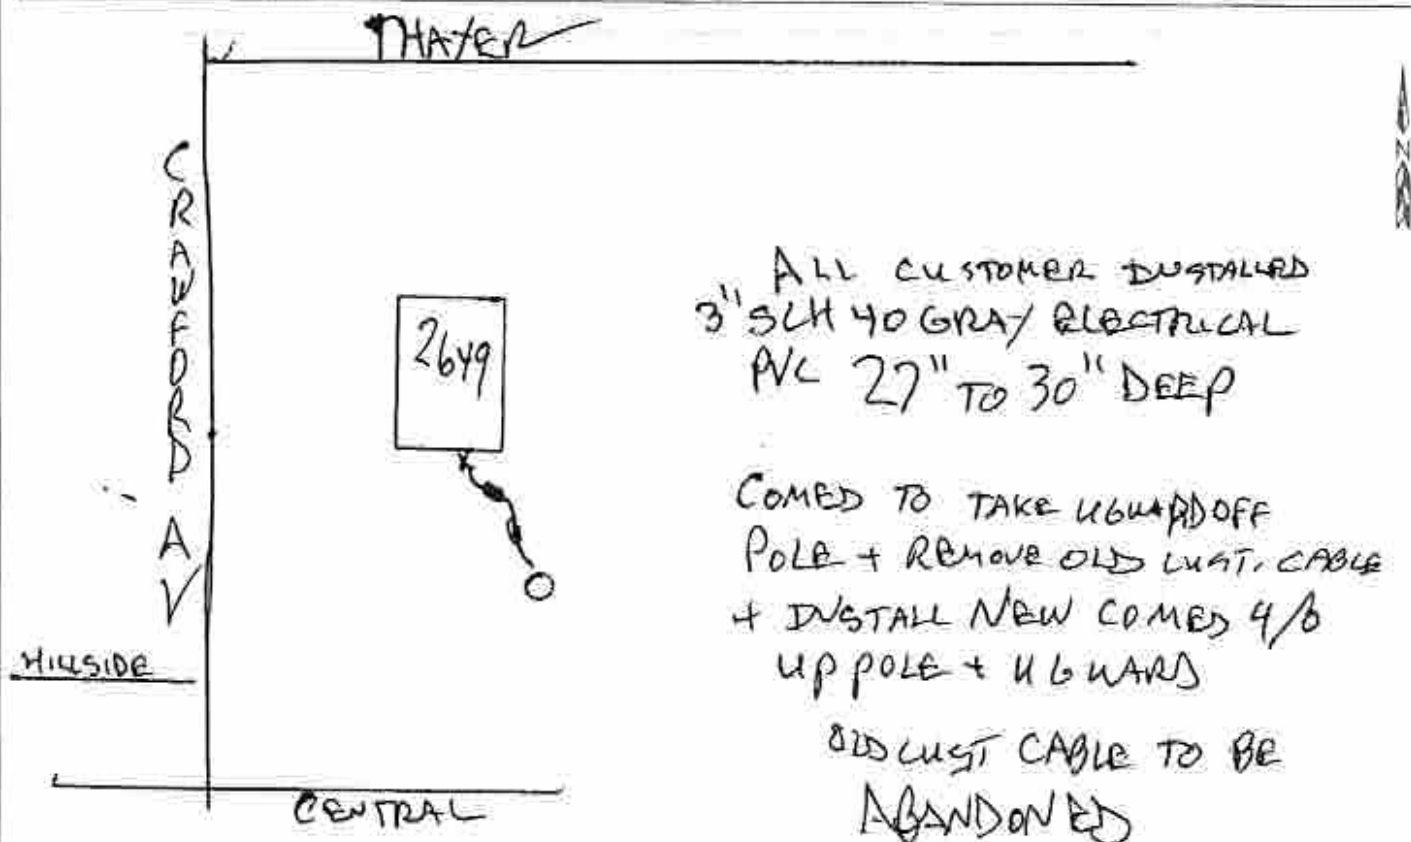 THAYER
N
CRAWFORD AV
2649
ALL CUSTOMER INSTALLED
3" SCH 40 GRAY ELECTRICAL
PVC 27" TO 30" DEEP
COMED TO TAKE UGUARD OFF
POLE + REMOVE OLD CUST. CABLE
+ INSTALL NEW COMED 4/0
UP POLE + UGUARD
HILLSIDE
OLD CUST CABLE TO BE
ABANDONED
CENTRAL